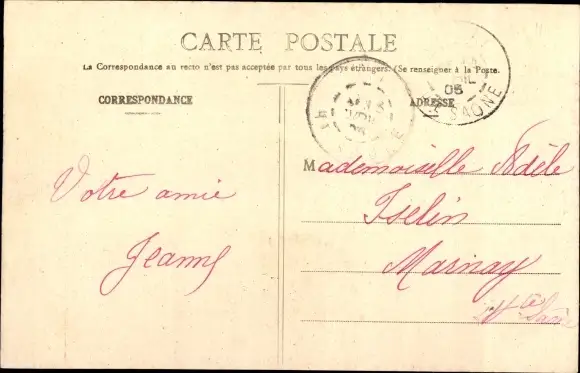 CARTE POSTALE
La Correspondance au recto n'est pas acceptée par tous les pays étrangers. (Se renseigner à la Poste.
CORRESPONDANCE
ADRESSE
05
SAONE
Votre amie
Jeanne
Mademoiselle Adèle
Iselin
Marnay
Hte Saône